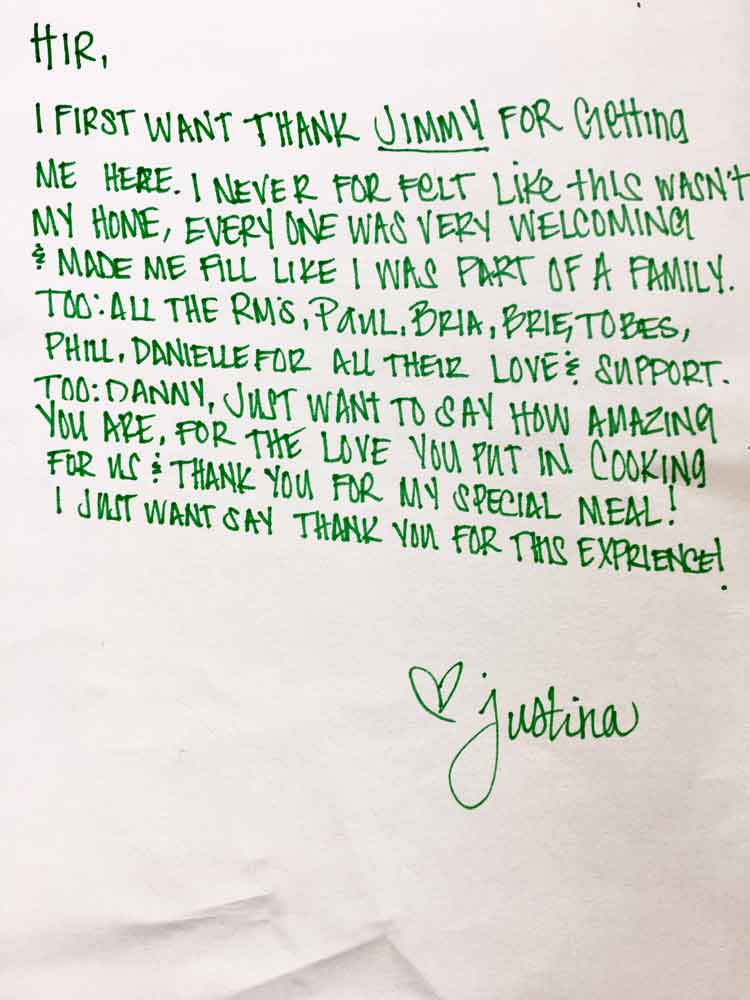 HIR,
I FIRST WANT THANK JIMMY FOR GETTING
ME HERE. I NEVER FOR FELT LIKE THIS WASN'T
MY HOME, EVERY ONE WAS VERY WELCOMING
& MADE ME FILL LIKE I WAS PART OF A FAMILY.
TOO: ALL THE RM'S, PAUL, BRIA, BRIE, TOBES,
PHILL, DANIELLE FOR ALL THEIR LOVE & SUPPORT.
TOO: DANNY, JUST WANT TO SAY HOW AMAZING
YOU ARE, FOR THE LOVE YOU PUT IN COOKING
FOR US & THANK YOU FOR MY SPECIAL MEAL!
I JUST WANT SAY THANK YOU FOR THIS EXPRIENCE!
♡ Justina